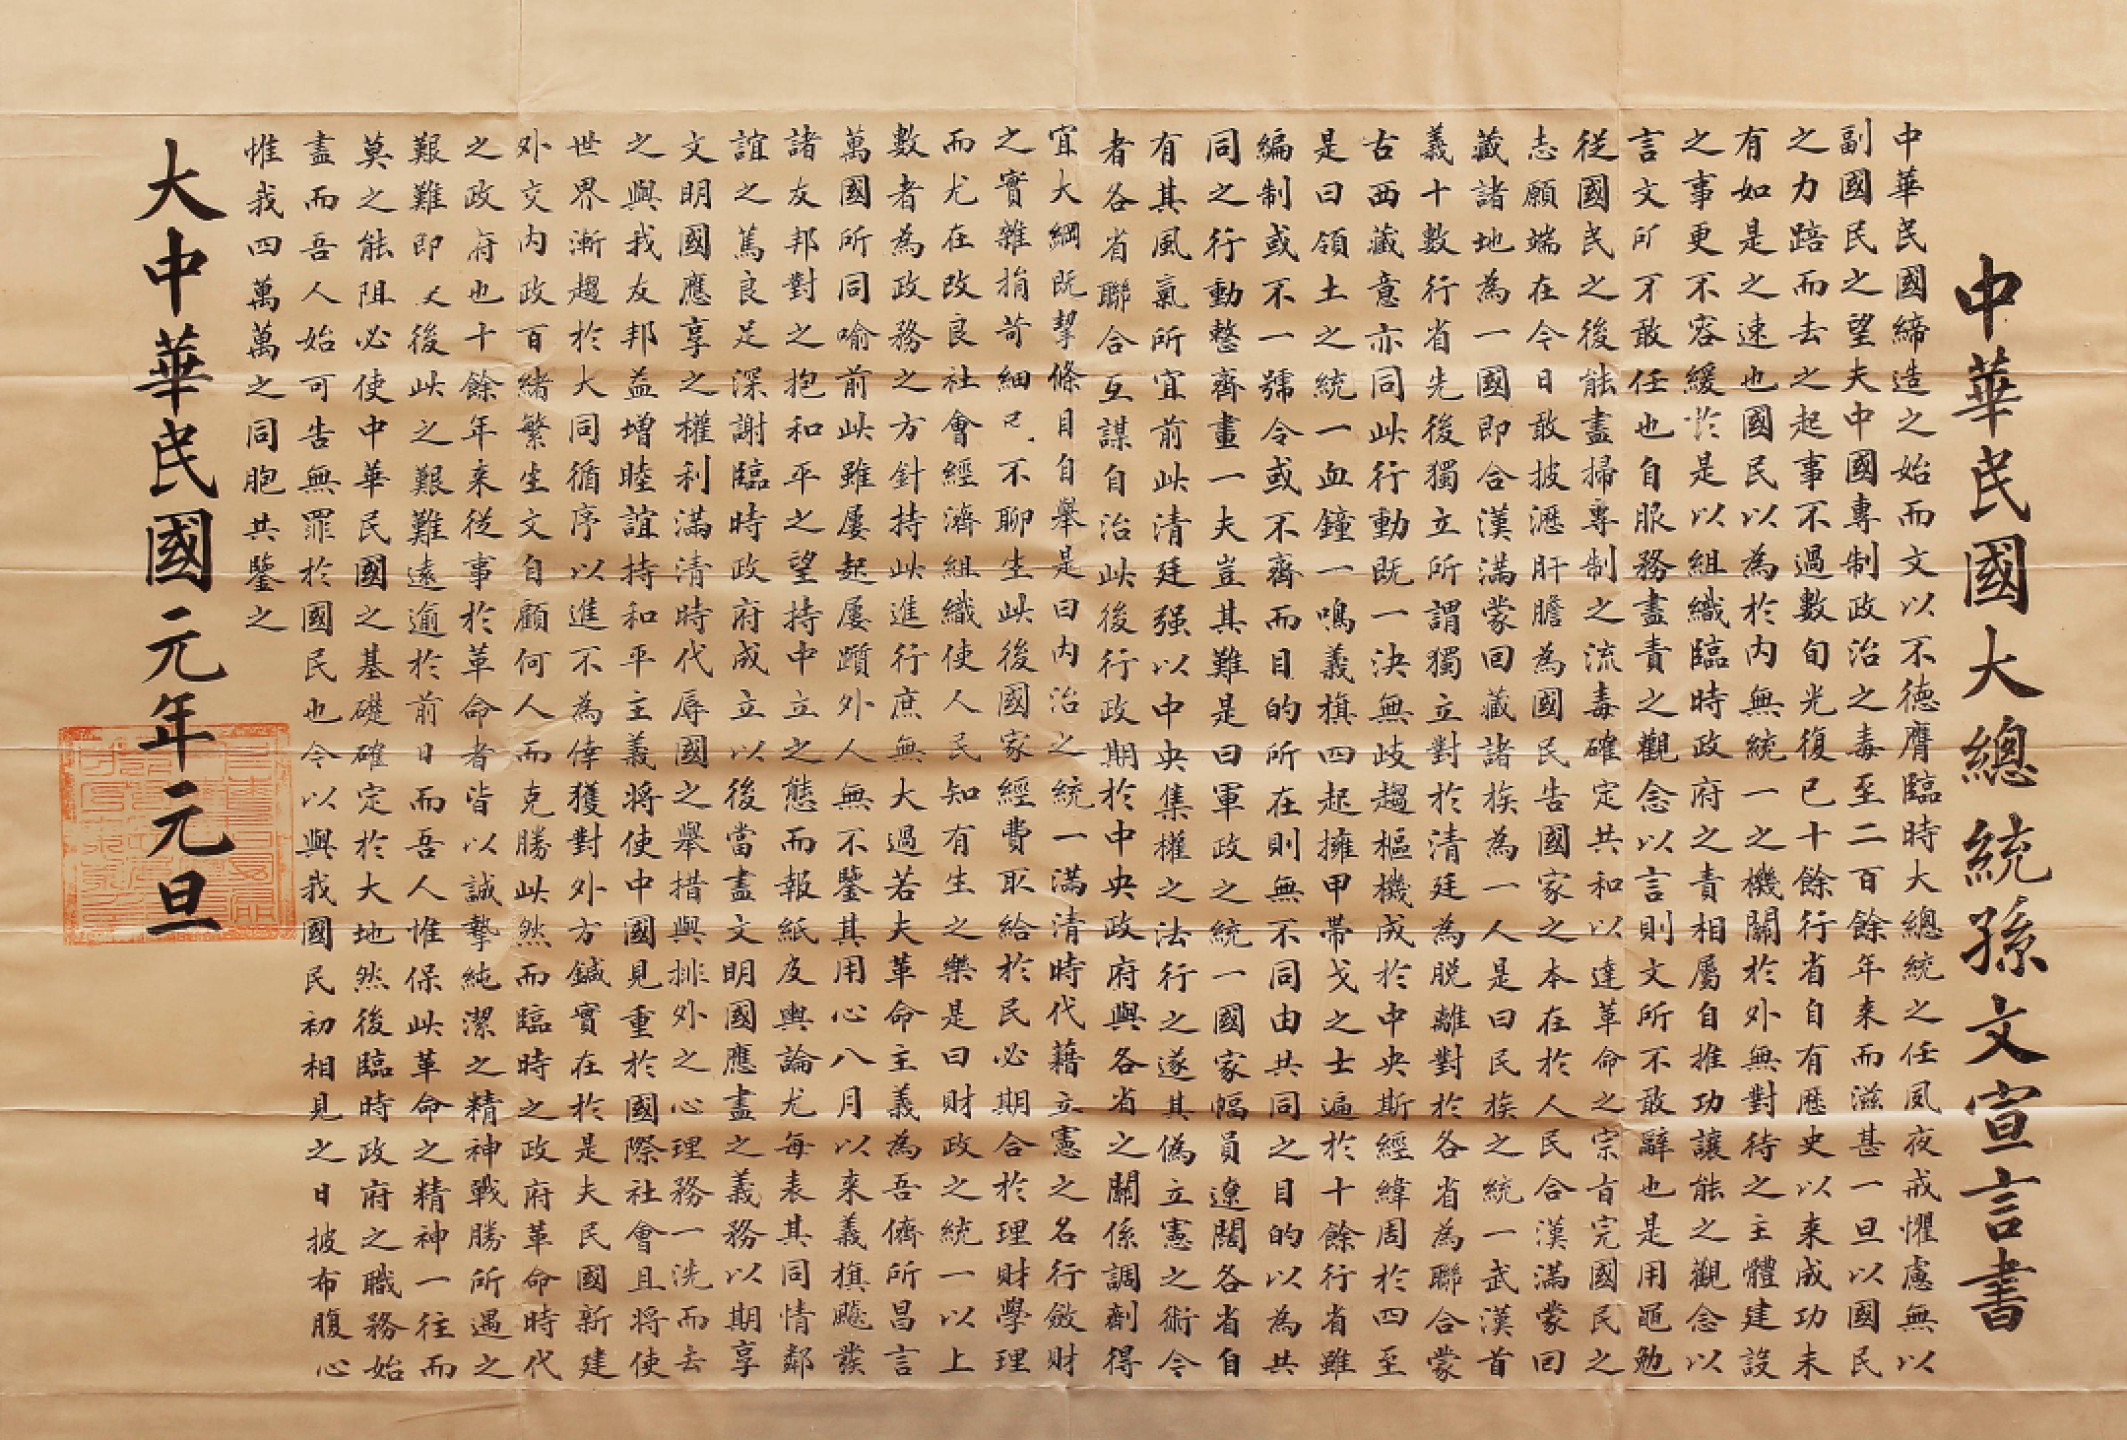 中華民國大總統孫文宣言書
中華民國締造之始而文以不德膺臨時大總統之任夙夜戒懼慮無以
副國民之望夫中國專制政治之毒至二百餘年来而滋甚一旦以國民
之力踣而去之起事不過數旬光復已十餘行省自有歷史以来成功未
有如是之速也國民以為於内無統一之機關於外無對待之主體建設
之事更不容緩於是以組織臨時政府之責相屬自推功讓能之觀念以
言文所不敢任也自服務盡責之觀念以言則文所不敢辭也是用黽勉
從國民之後能盡掃專制之流毒確定共和以達革命之宗旨完國民之
志願端在今日敢披瀝肝膽為國民告國家之本在於人民合漢滿蒙回
藏諸地為一國即合漢滿蒙回藏諸族為一人是曰民族之統一武漢首
義十數行省先後獨立所謂獨立對於清廷為脱離對於各省為聯合蒙
古西藏意亦同此行動既一決無歧趨樞機成於中央斯經緯周於四至
是曰領土之統一血鐘一鳴義旗四起擁甲帶戈之士遍於十餘行省雖
編制或不一號令或不齊而目的所在則無不同由共同之目的以為共
同之行動整齊畫一夫豈其難是曰軍政之統一國家幅員遼闊各省自
有其風氣所宜前此清廷强以中央集權之法行之遂其偽立憲之術今
者各省聯合互謀自治此後行政期於中央政府與各省之關係調劑得
宜大綱既挈條目自舉是曰内治之統一滿清時代藉立憲之名行斂財
之實雜捐苛細民不聊生此後國家經費取給於民必期合於理財學理
而尤在改良社會經濟組織使人民知有生之樂是曰財政之統一以上
數者為政務之方針持此進行庶無大過若夫革命主義為吾儕所昌言
萬國所同喻前此雖屢起屢躓外人無不鑒其用心八月以来義旗飈發
諸友邦對之抱和平之望持中立之態而報紙及輿論尤每表其同情鄰
誼之篤良足深謝臨時政府成立以後當盡文明國應盡之義務以期享
文明國應享之權利滿清時代辱國之舉措與排外之心理務一洗而去
之與我友邦益增睦誼持和平主義將使中國見重於國際社會且將使
世界漸趨於大同循序以進不為倖獲對外方鍼實在於是夫民國新建
外交内政百緒繁生文自顧何人而克勝此然而臨時之政府革命時代
之政府也十餘年来從事於革命者皆以誠摯純潔之精神戰勝所遇之
艱難即後此之艱難遠逾於前日而吾人惟保此革命之精神一往而
莫之能阻必使中華民國之基礎確定於大地然後臨時政府之職務始
盡而吾人始可告無罪於國民也今以與我國民初相見之日披布腹心
惟我四萬萬之同胞共鑒之
大中華民國元年元旦